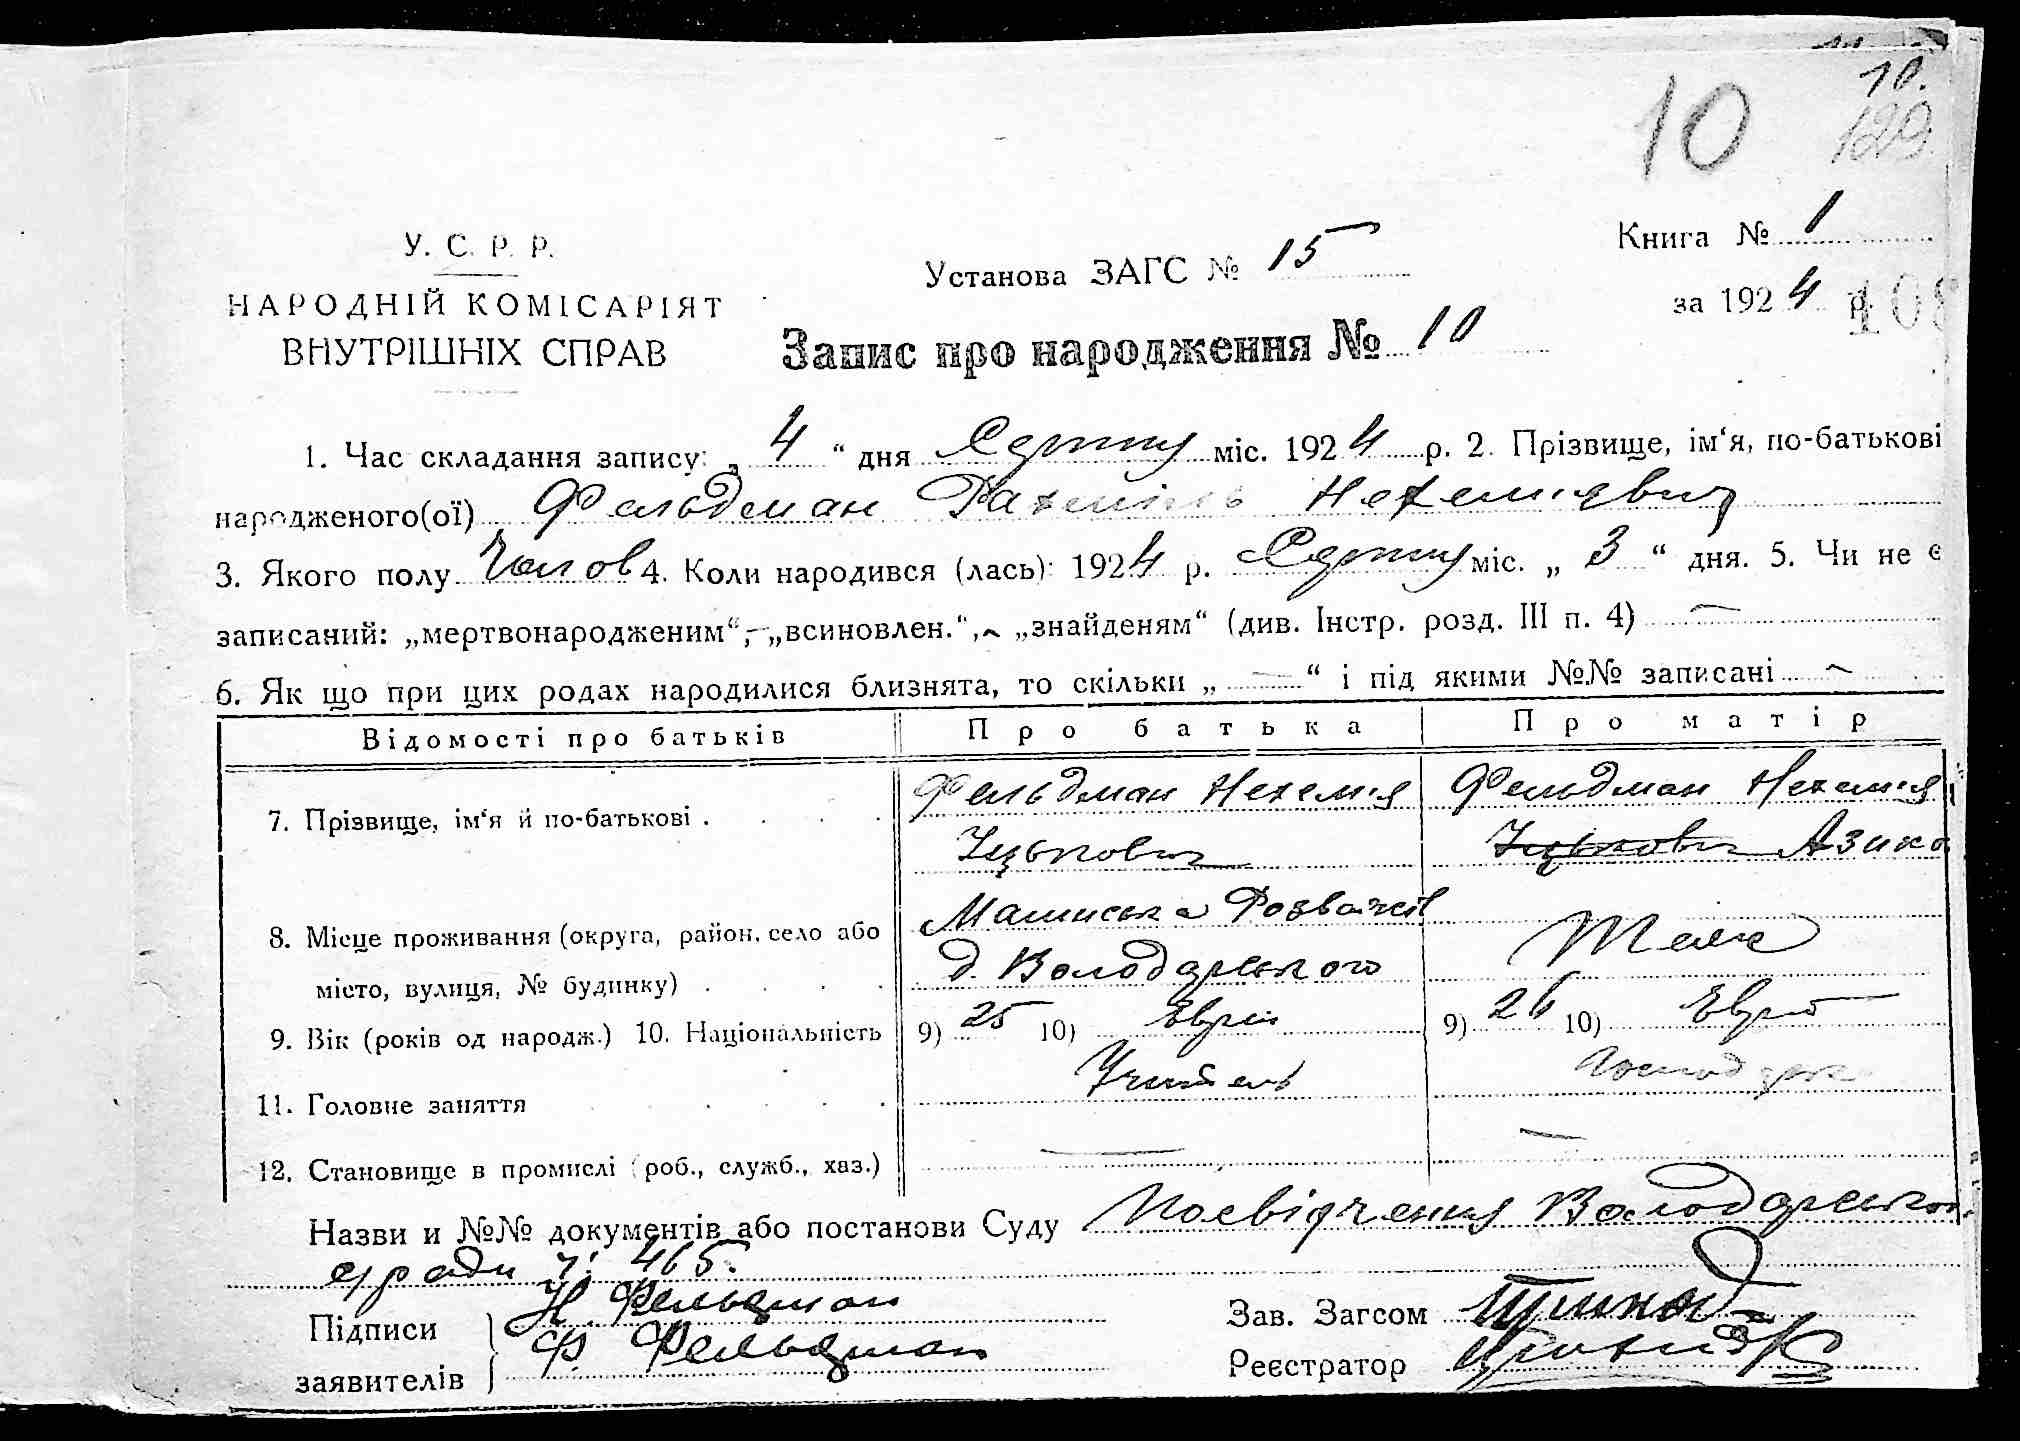 10.
10
129
У. С. Р. Р.
НАРОДНІЙ КОМІСАРІЯТ
ВНУТРІШНІХ СПРАВ
Установа ЗАГС № 15
Книга № 1
за 1924 р.
108
Запис про народження № 10
1. Час складання запису: „ 4 “ дня міс. 1924 р. 2. Прізвище, ім‘я, по-батькові
народженого(ої) Фельдман Нехемієвич
3. Якого полу Чолов 4. Коли народився (лась): 1924 р. міс. „ 3 “ дня. 5. Чи не є
записаний: „мертвонародженим“, „всиновлен.“, „знайденям“ (див. Інстр. розд. III п. 4)
6. Як що при цих родах народилися близнята, то скільки „ — “ і під якими №№ записані
Відомості про батьків Про батька Про матір
7. Прізвище, ім‘я й по-батькові . . . . Фельдман Нехемія Фельдман Нехемія
Іцькович Іцькович
8. Місце проживання (округа, район, село або
місто, вулиця, № будинку) . . . . д. Володарського Теж
9. Вік (років од народж.) 10. Національність 9) 25 10) Еврей 9) 26 10) Еврей
11. Головне заняття . . . . . Учитель
12. Становище в промислі (роб., служб., хаз.) — —
Назви и №№ документів або постанови Суду Посвідчення Володарської
с/ради ч. 465.
Підписи Н. Фельдман
заявителів Ф. Фельдман
Зав. Загсом
Реєстратор